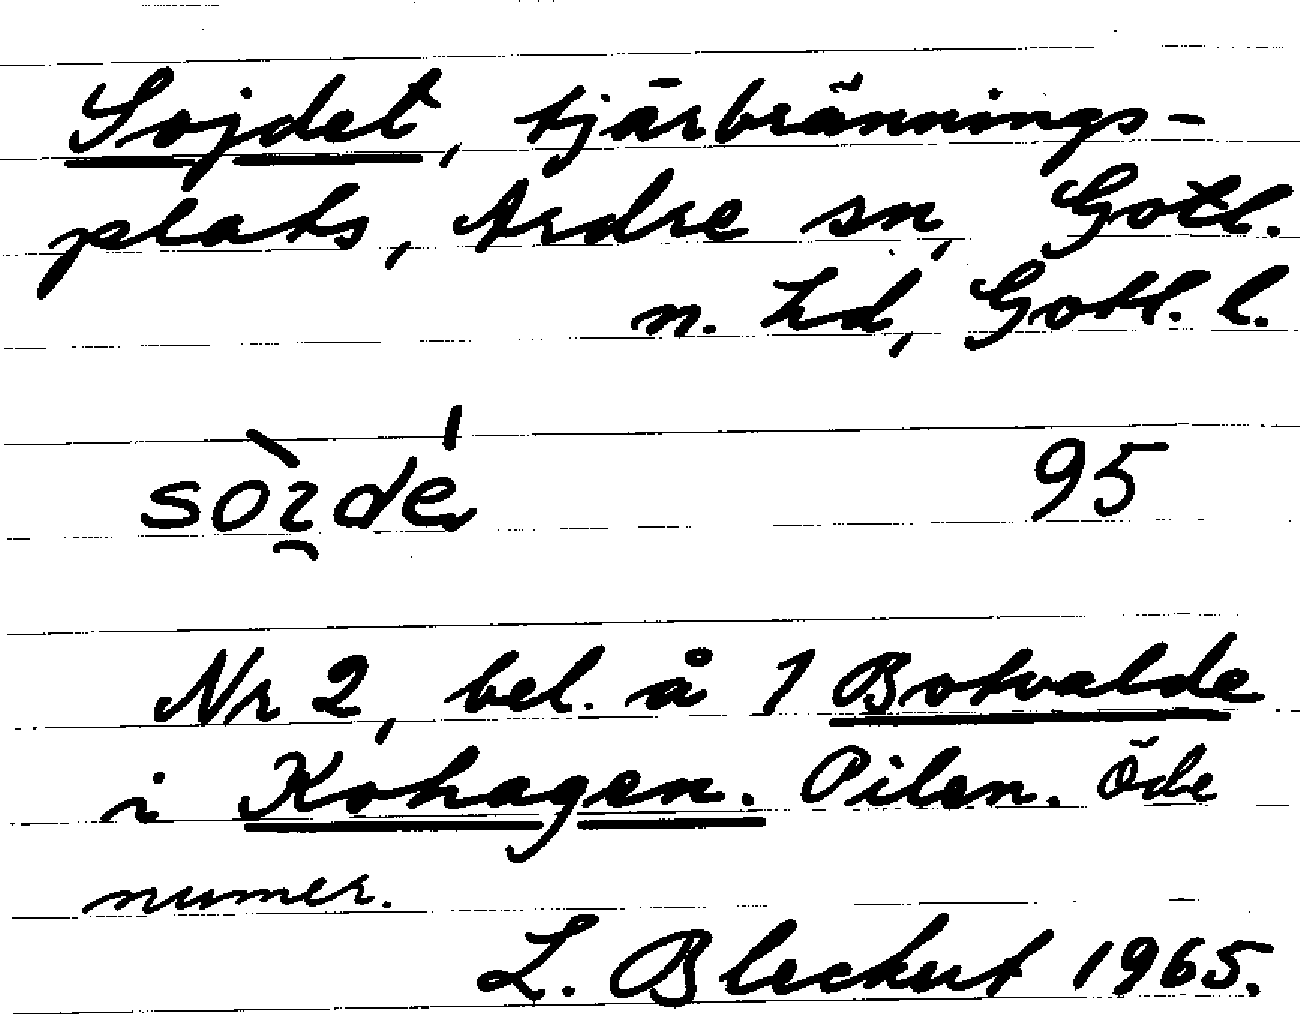 Sojdet, tjärbrännings-
plats, Ardre sn, Gotl.
n. hd, Gotl. l.
95
Nr 2, bel. å 1 Botvalde
i Kohagen. Pilen. Öde
numer.
L. Bleckut 1965.